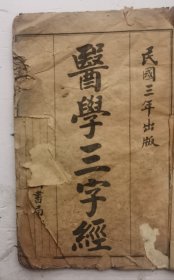 民國三年出版
醫學三字經
書局